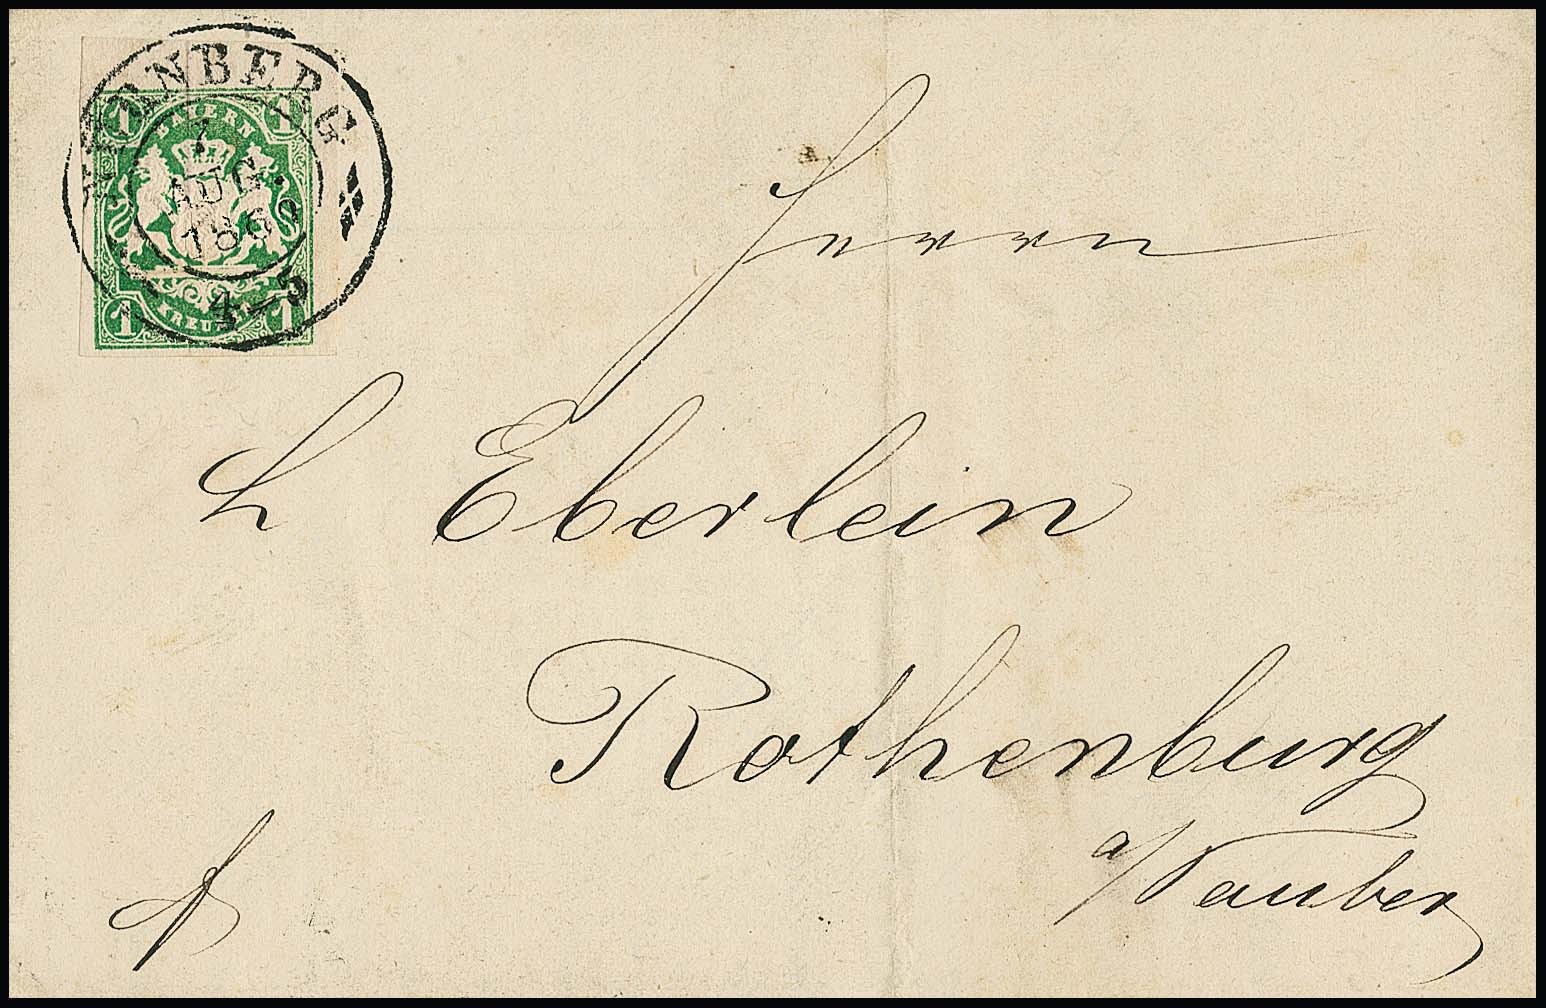 NÜRNBERG
7
AUG.
1869
4-5
1 1
BAYERN
KREUZER
1 1
Herrn
L Eberlein
Rothenburg
a/Tauber